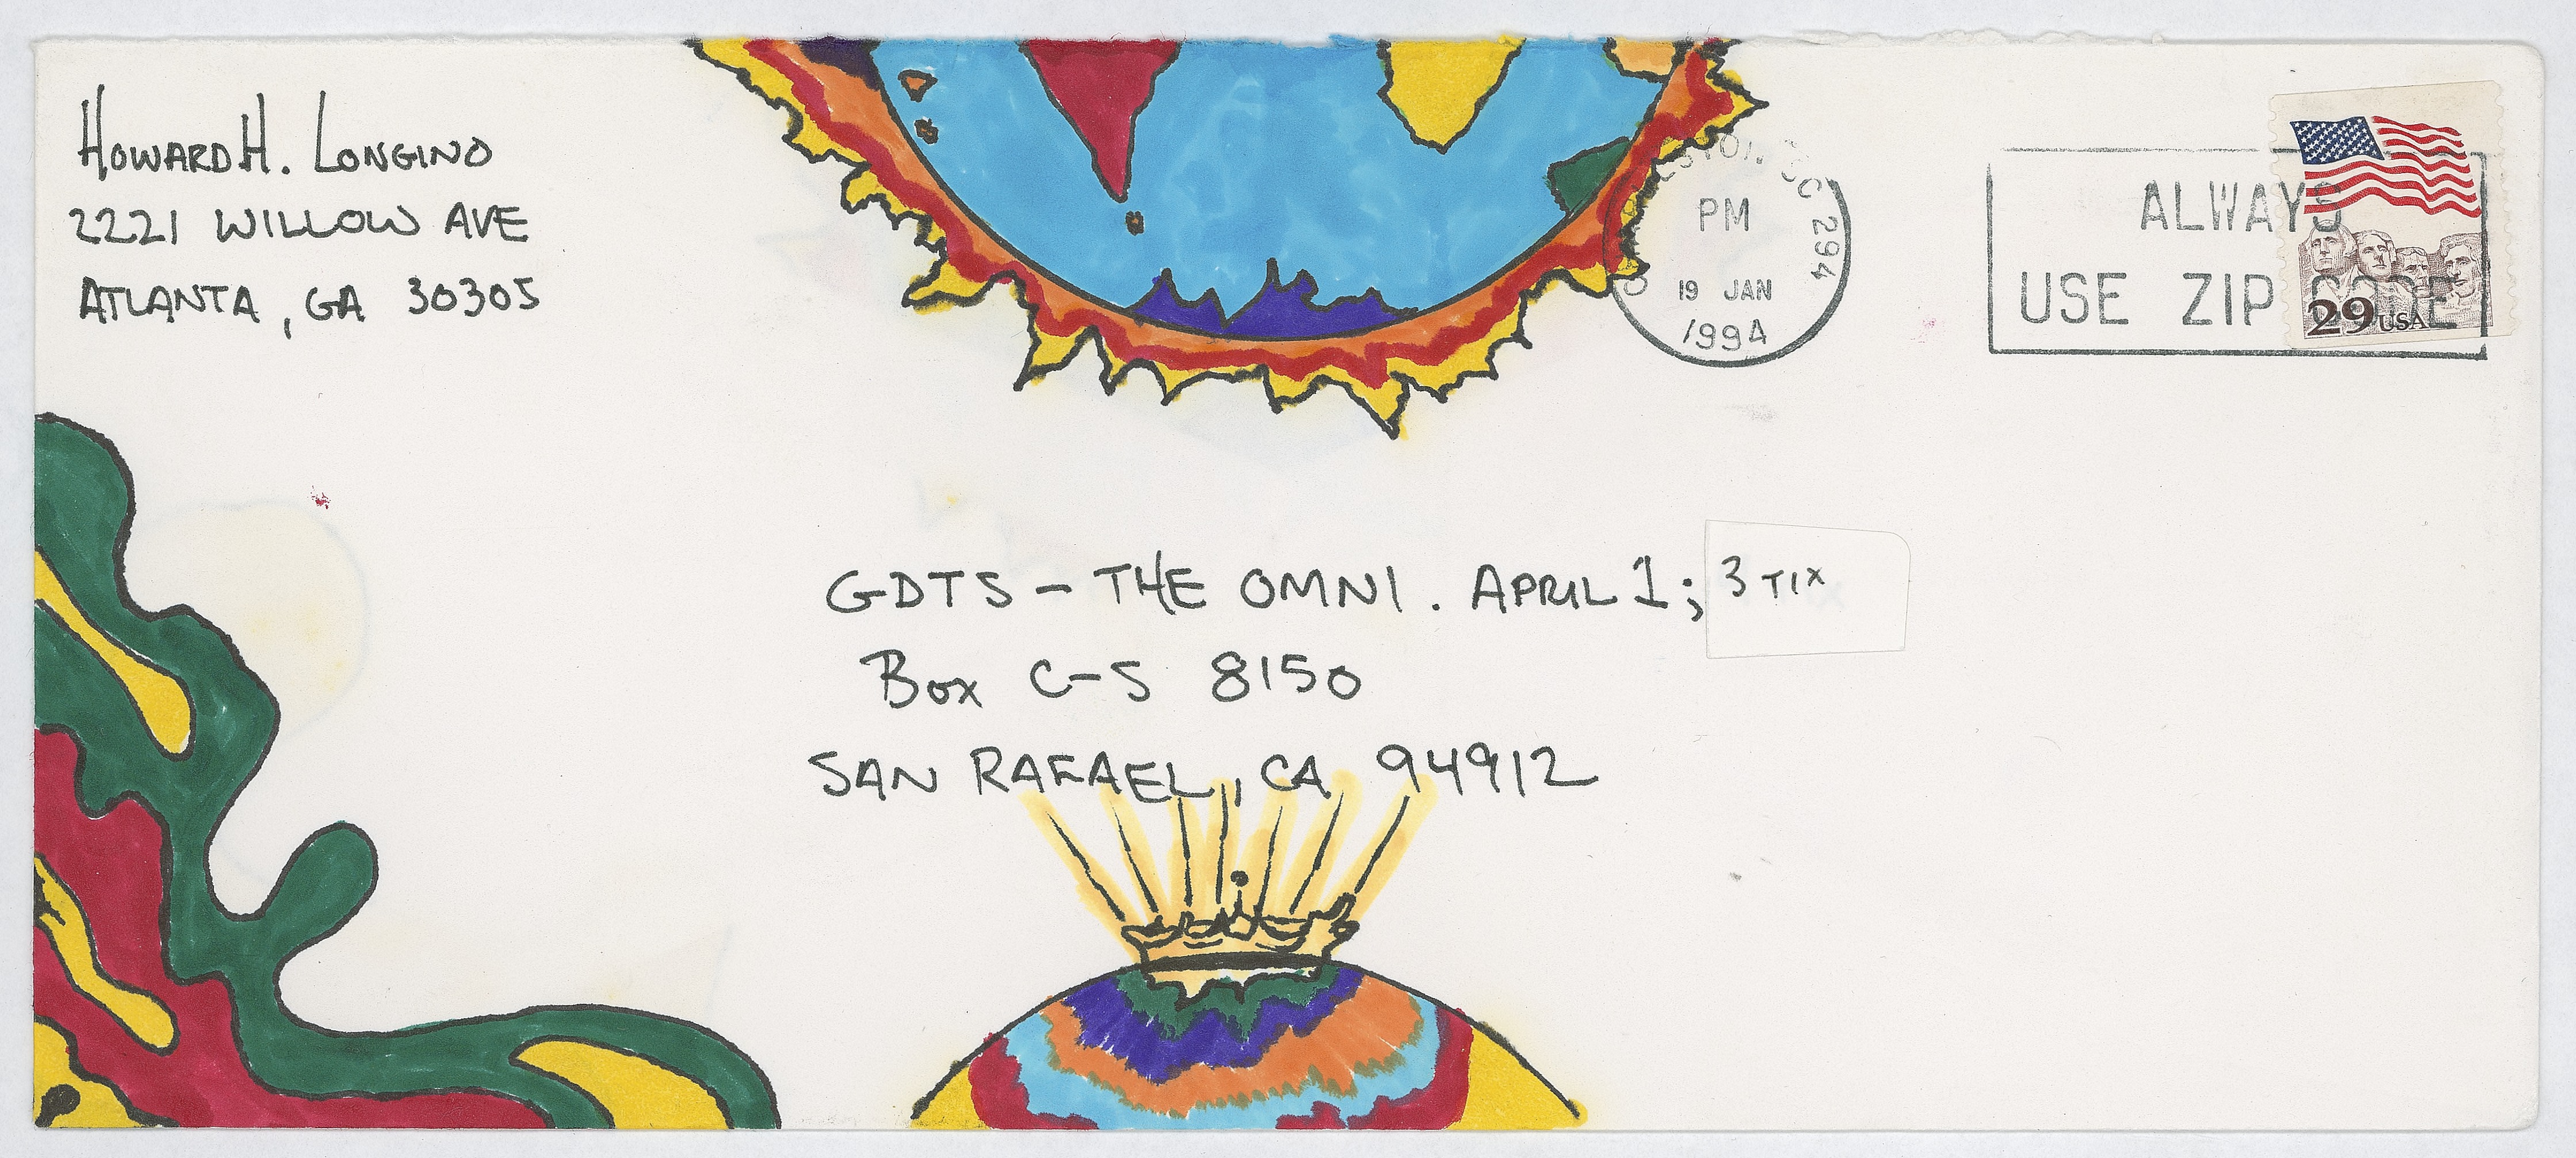 HOWARD H. LONGINO
2221 WILLOW AVE
ATLANTA, GA 30305
SC 294
PM
19 JAN
1994
ALWAYS
USE ZIP CODE
29 USA
GDTS - THE OMNI. APRIL 1; 3 TIX
BOX C-S 8150
SAN RAFAEL, CA 94912